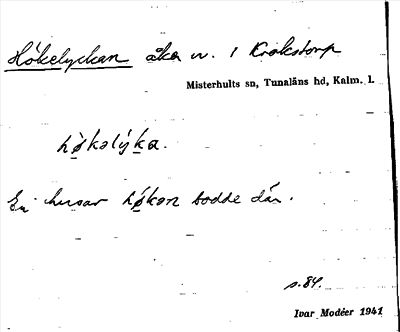 Hökelyckan åker n. 1 Krokstorp
Misterhults sn, Tunaläns hd, Kalm. l.
hø̀kəlýka.
En husar hø̀kən bodde där.
s. 84.
Ivar Modéer 1941